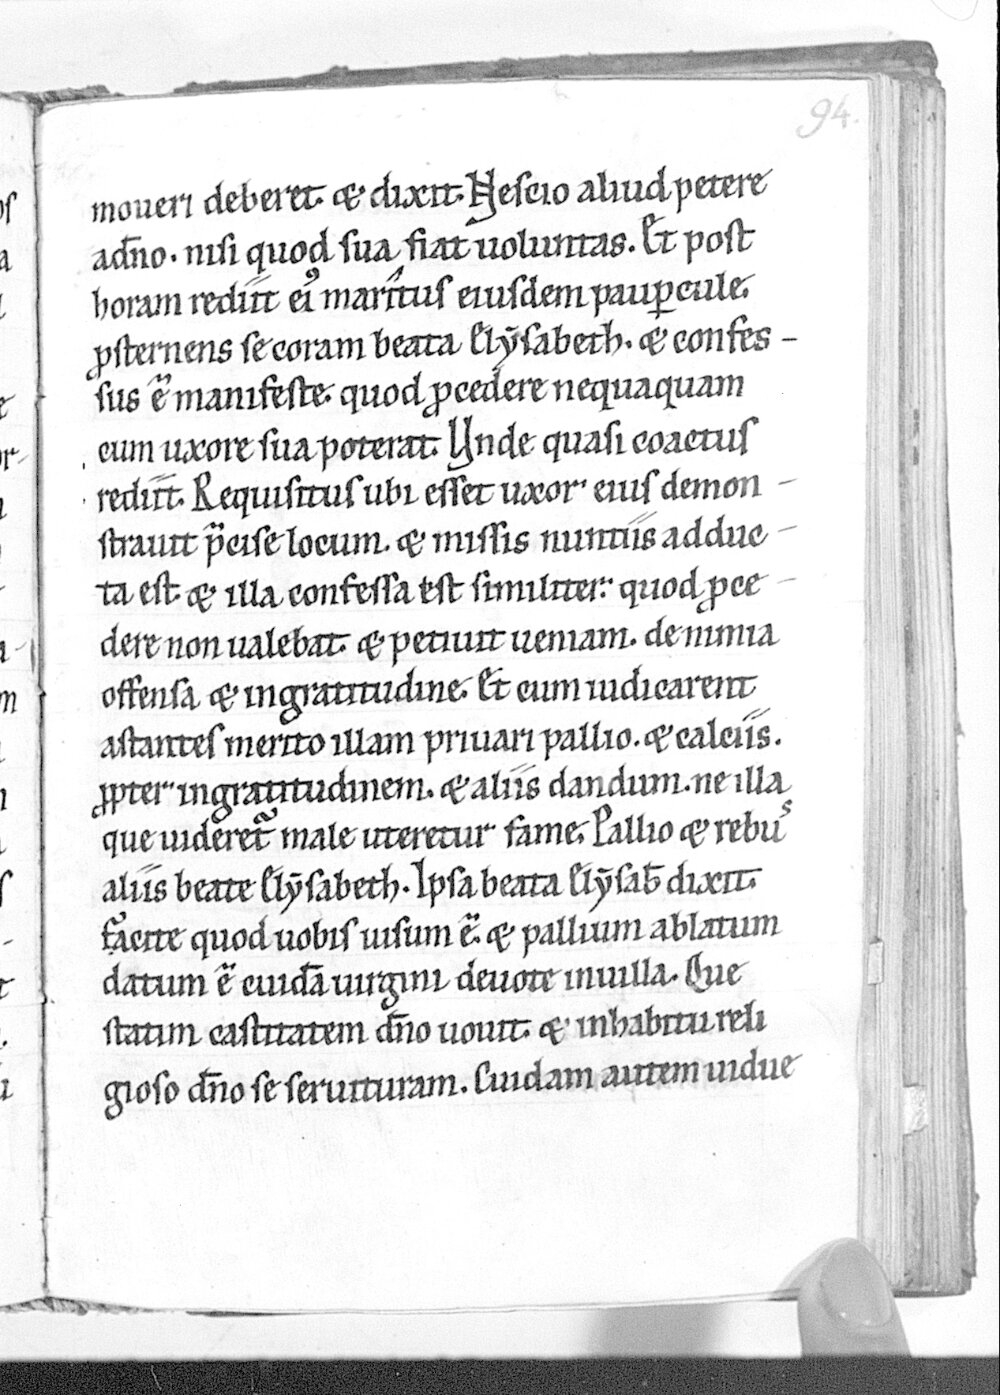 94.
moueri deberet. & dixit. Nescio aliud petere
a dño. nisi quod sua fiat uoluntas. Et post
horam rediit ei⁹ maritus eiusdem paupcule.
psternens se coram beata Elẏsabeth. & confes-
sus ē manifeste. quod pcedere nequaquam
cum uxore sua poterat. Unde quasi coactus
rediit. Requisitus ubi esset uxor eius demon-
strauit pcise locum. & missis nuntiis adduc-
ta est. & illa confessa est similiter: quod pce-
dere non ualebat. & petiuit ueniam. de nimia
offensa & ingratitudine. Et cum iudicarent
astantes merito illam priuari pallio. & calciis.
ppter ingratitudinem. & aliis dandum. ne illa
que uideret male uteretur fame. Pallio & rebus
aliis beate Elẏsabeth. Ipsa beata Elẏsab̄ dixit.
facite quod uobis uisum ē. & pallium ablatum
datum ē cuidā uirgini deuote in uilla. Que
statim castitatem dño uouit. & in habitu reli
gioso dño se seruituram. Cuidam autem uidue